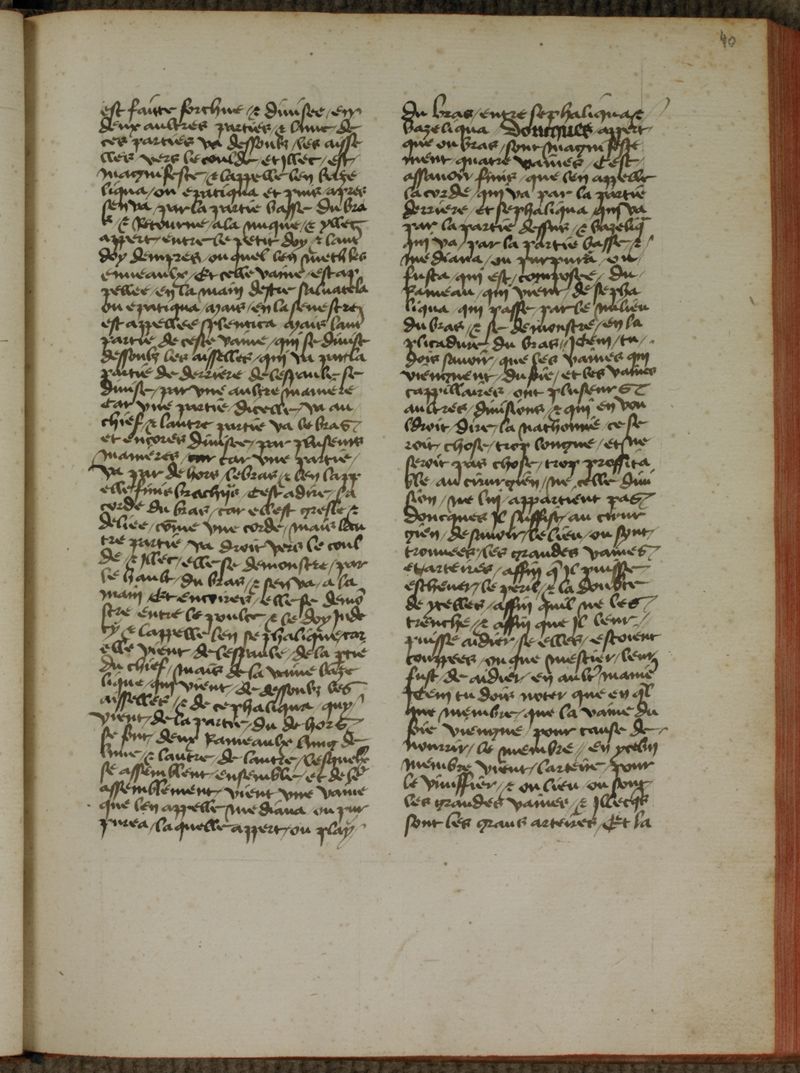 40
est faitte forchue / & diuisee / en
deux aultres parties / & lune de
ces parties va dessoubz / les aisse
lles vers le coulde et jllec / est
magnifeste / & lappelle len baze
liqua / ou epatiqua et puis apres
sen va / par la partie basse du bra
s / & Retourne / a la nuque / & yllec
appert / entre le petit doy / & laut
doy dempres / ou quel len meth les
enneaulx / Et celle vaine / est ap
pellee / en la main destre saluatela
ou epatiqua / mais / en la senestre
est appellee splentica mais laut
partie de ceste vaine / qui se diuise
dessoubz les aisselles / qui va par la
partie de derriere de lespaule se
diuise / par vne aultre maniere
car vne partie / dicelle / va au
chief / & lautre partie va le bras
et encores diuisee / par pluseurs
manieres car vne partie /
va par de hors / le bras / & len lapp
elle funis brachijs / cest adire / la
corde du bras / car elle est gresle / &
deliee / come vne corde / mais lau
tre partie / va droit vers le coul
de / & jllec / elle se demonstre / par
le hault / du bras / & sen va / a la
main Et encores / elle se demo
stre entre le poulce / & le doy Inde
cy / & lappelle len sephalique / car
elle vient de lespaule / de la ptie
du chief / mais de la vaine baze
lique / qui vient / de dessoubz les
aisselles / & de cephaliqua / quy
vient / de la partie / du dehors
se font deux Rameaulx lung de
lune / & lautre / de lautre / lesquelz
se assemblent ensemble / et de le
assemblement / vient vne vaine
que len appelle / mediana ou pur
purea / laquelle appert / ou play
du bras / entre sephaliqua / &
bazeliqua Doncques appert
que ou bras / sont magnifeste
ment quatre vaines / Cest
assauoir funis / que len appelle
la corde / qui va par la partie
derriere / et sephaliqua / qui va
par la partie dessus / & bazeliq
qui va / par la partie basse / &
mediana / ou purpura / ou
fusca / qui est / composee / du
Rameau / qui vient / de sepha
liqua / qui passe / par le milieu
du bras / & se demonstre / en la
plicadure du bras / Jtem / tu
dois sauoir / que les vaines qui
viengnent / du fie / et les vaines
cappillaires / ont pluseurs
aultres / diuisions / & qui en vou
ldroit dire / la nathomie / ce se
roit / chose / trop longue / et ne
seroit pas chose / trop proffita
ble / au cirurgien / ne / celle diui
sion / ne lui / appartient pas
doncques Jl suffist / au cirur
gien / de sauoir / le lieu / ou sont /
trouuees / les grandes vaines
et arteires / affin q Jl puisse
escheuer / le peril / & la doubte
de ycelles / affin quil ne les
trenche / & affin que Jl leur /
puisse aidier / se elles / estoient
couppees / ou que mestier / leur
fust / de aidier / en ault manie
Jtem tu dois noter que en ql
que membre / que la vaine du
fie viengne / pour cause de
nourrir / le membre / en ycelui
membre vient / lartere / pour
le viuiffier / & ou lieu / ou sont
les grandes vaines / & Jllecqs
sont les grans arteires / Et la